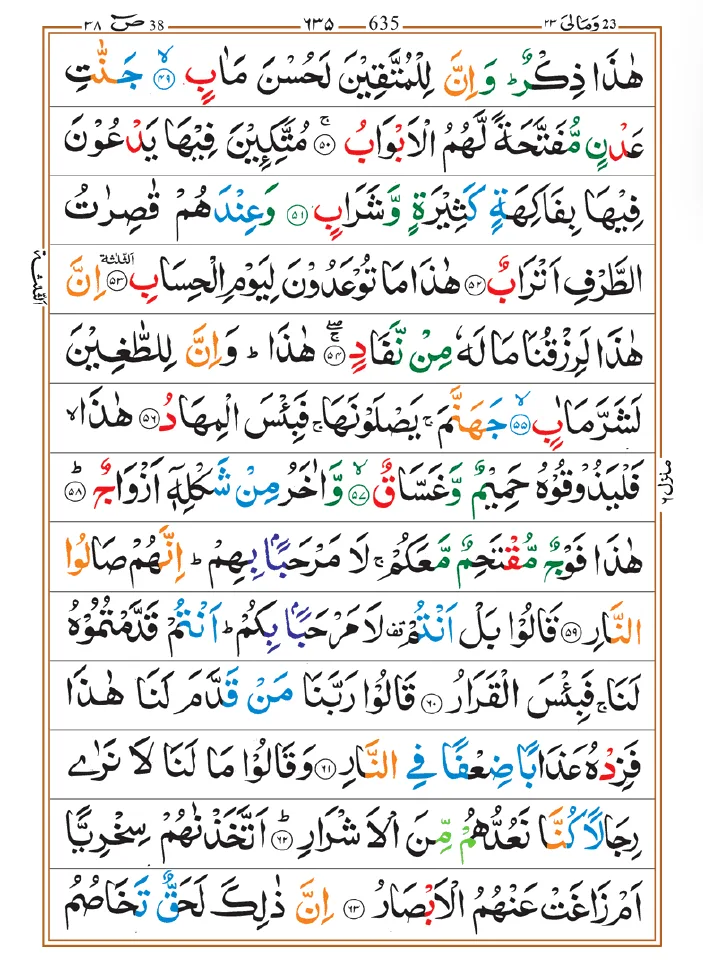 ٣٨ صٓ 38 ٦٣٥ 635 وَمَالِیَ ٢٣ 23
هٰذَا ذِكْرٌ ؕ وَاِنَّ لِلْمُتَّقِيْنَ لَحُسْنَ مَاٰبٍ ۙ ﴿۴۹﴾ جَنّٰتِ
عَدْنٍ مُّفَتَّحَةً لَّهُمُ الْاَبْوَابُ ۚ ﴿۵۰﴾ مُتَّكِـِٕيْنَ فِيْهَا يَدْعُوْنَ
فِيْهَا بِفَاكِهَةٍ كَثِيْرَةٍ وَّشَرَابٍ ﴿۵۱﴾ وَعِنْدَهُمْ قٰصِرٰتُ
الطَّرْفِ اَتْرَابٌ ﴿۵۲﴾ هٰذَا مَا تُوْعَدُوْنَ لِيَوْمِ الْحِسَابِ ﴿۵۳﴾ الثلثة اِنَّ
الثلثة
هٰذَا لَرِزْقُنَا مَا لَهٗ مِنْ نَّفَادٍ ۚ ۖ ﴿۵۴﴾ هٰذَا ؕ وَاِنَّ لِلطّٰغِيْنَ
لَشَرَّ مَاٰبٍ ۙ ﴿۵۵﴾ جَهَنَّمَ ۚ يَصْلَوْنَهَا ۚ فَبِئْسَ الْمِهَادُ ﴿۵۶﴾ هٰذَا ۙ
فَلْيَذُوْقُوْهُ حَمِيْمٌ وَّغَسَّاقٌ ۙ ﴿۵۷﴾ وَّاٰخَرُ مِنْ شَكْلِهٖۤ اَزْوَاجٌ ؕ ﴿۵۸﴾
منزل ٦
هٰذَا فَوْجٌ مُّقْتَحِمٌ مَّعَكُمْ ۚ لَا مَرْحَبًۢا بِهِمْ ؕ اِنَّهُمْ صَالُوا
النَّارِ ﴿۵۹﴾ قَالُوْا بَلْ اَنْتُمْ قف لَا مَرْحَبًۢا بِكُمْ ؕ اَنْتُمْ قَدَّمْتُمُوْهُ
لَنَا ۚ فَبِئْسَ الْقَرَارُ ﴿۶۰﴾ قَالُوْا رَبَّنَا مَنْ قَدَّمَ لَنَا هٰذَا
فَزِدْهُ عَذَابًا ضِعْفًا فِي النَّارِ ﴿۶۱﴾ وَقَالُوْا مَا لَنَا لَا نَرٰى
رِجَالًا كُنَّا نَعُدُّهُمْ مِّنَ الْاَشْرَارِ ؕ ﴿۶۲﴾ اَتَّخَذْنٰهُمْ سِخْرِيًّا
اَمْ زَاغَتْ عَنْهُمُ الْاَبْصَارُ ﴿۶۳﴾ اِنَّ ذٰلِكَ لَحَقٌّ تَخَاصُمُ